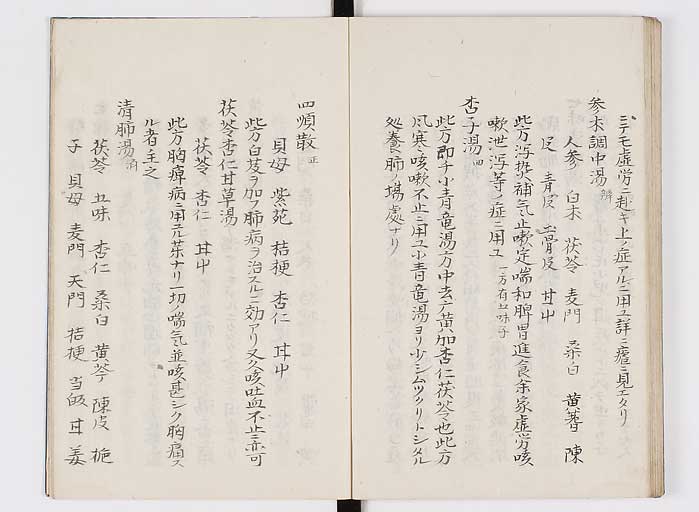 ミテモ虚労ニ赴キ上ノ症アルニ用ユ詳ニ瘡ニ見エタリ
参朮調中湯
人参 白朮 茯苓 麦門 桑白 黄蓍 陳
皮 青皮 地骨皮 甘艸
此方瀉熱補気止嗽定喘和脾胃進食余家虚労咳
嗽泄瀉等ノ症ニ用ユ 一方有五味子
杏子湯
此方即チ小青竜湯方中去麻黄加杏仁茯苓也此方
風寒咳嗽不止ニ用ユ小青竜湯ヨリ少シムックリトシタル
処養肺ノ場處ナリ
四順散 正
貝母 紫苑 桔梗 杏仁 甘艸
此方白芨ヲ加フ肺病ヲ治スルニ効アリ又久咳吐血不止ニ亦可
茯苓杏仁甘草湯
茯苓 杏仁 甘艸
此方胸痺病ニ用元薬ナリ一切ノ喘気並咳甚シク胸痛ス
ル者主之
清肺湯
茯苓 五味 杏仁 桑白 黄芩 陳皮 梔
子 貝母 麦門 天門 桔梗 当皈 甘 姜